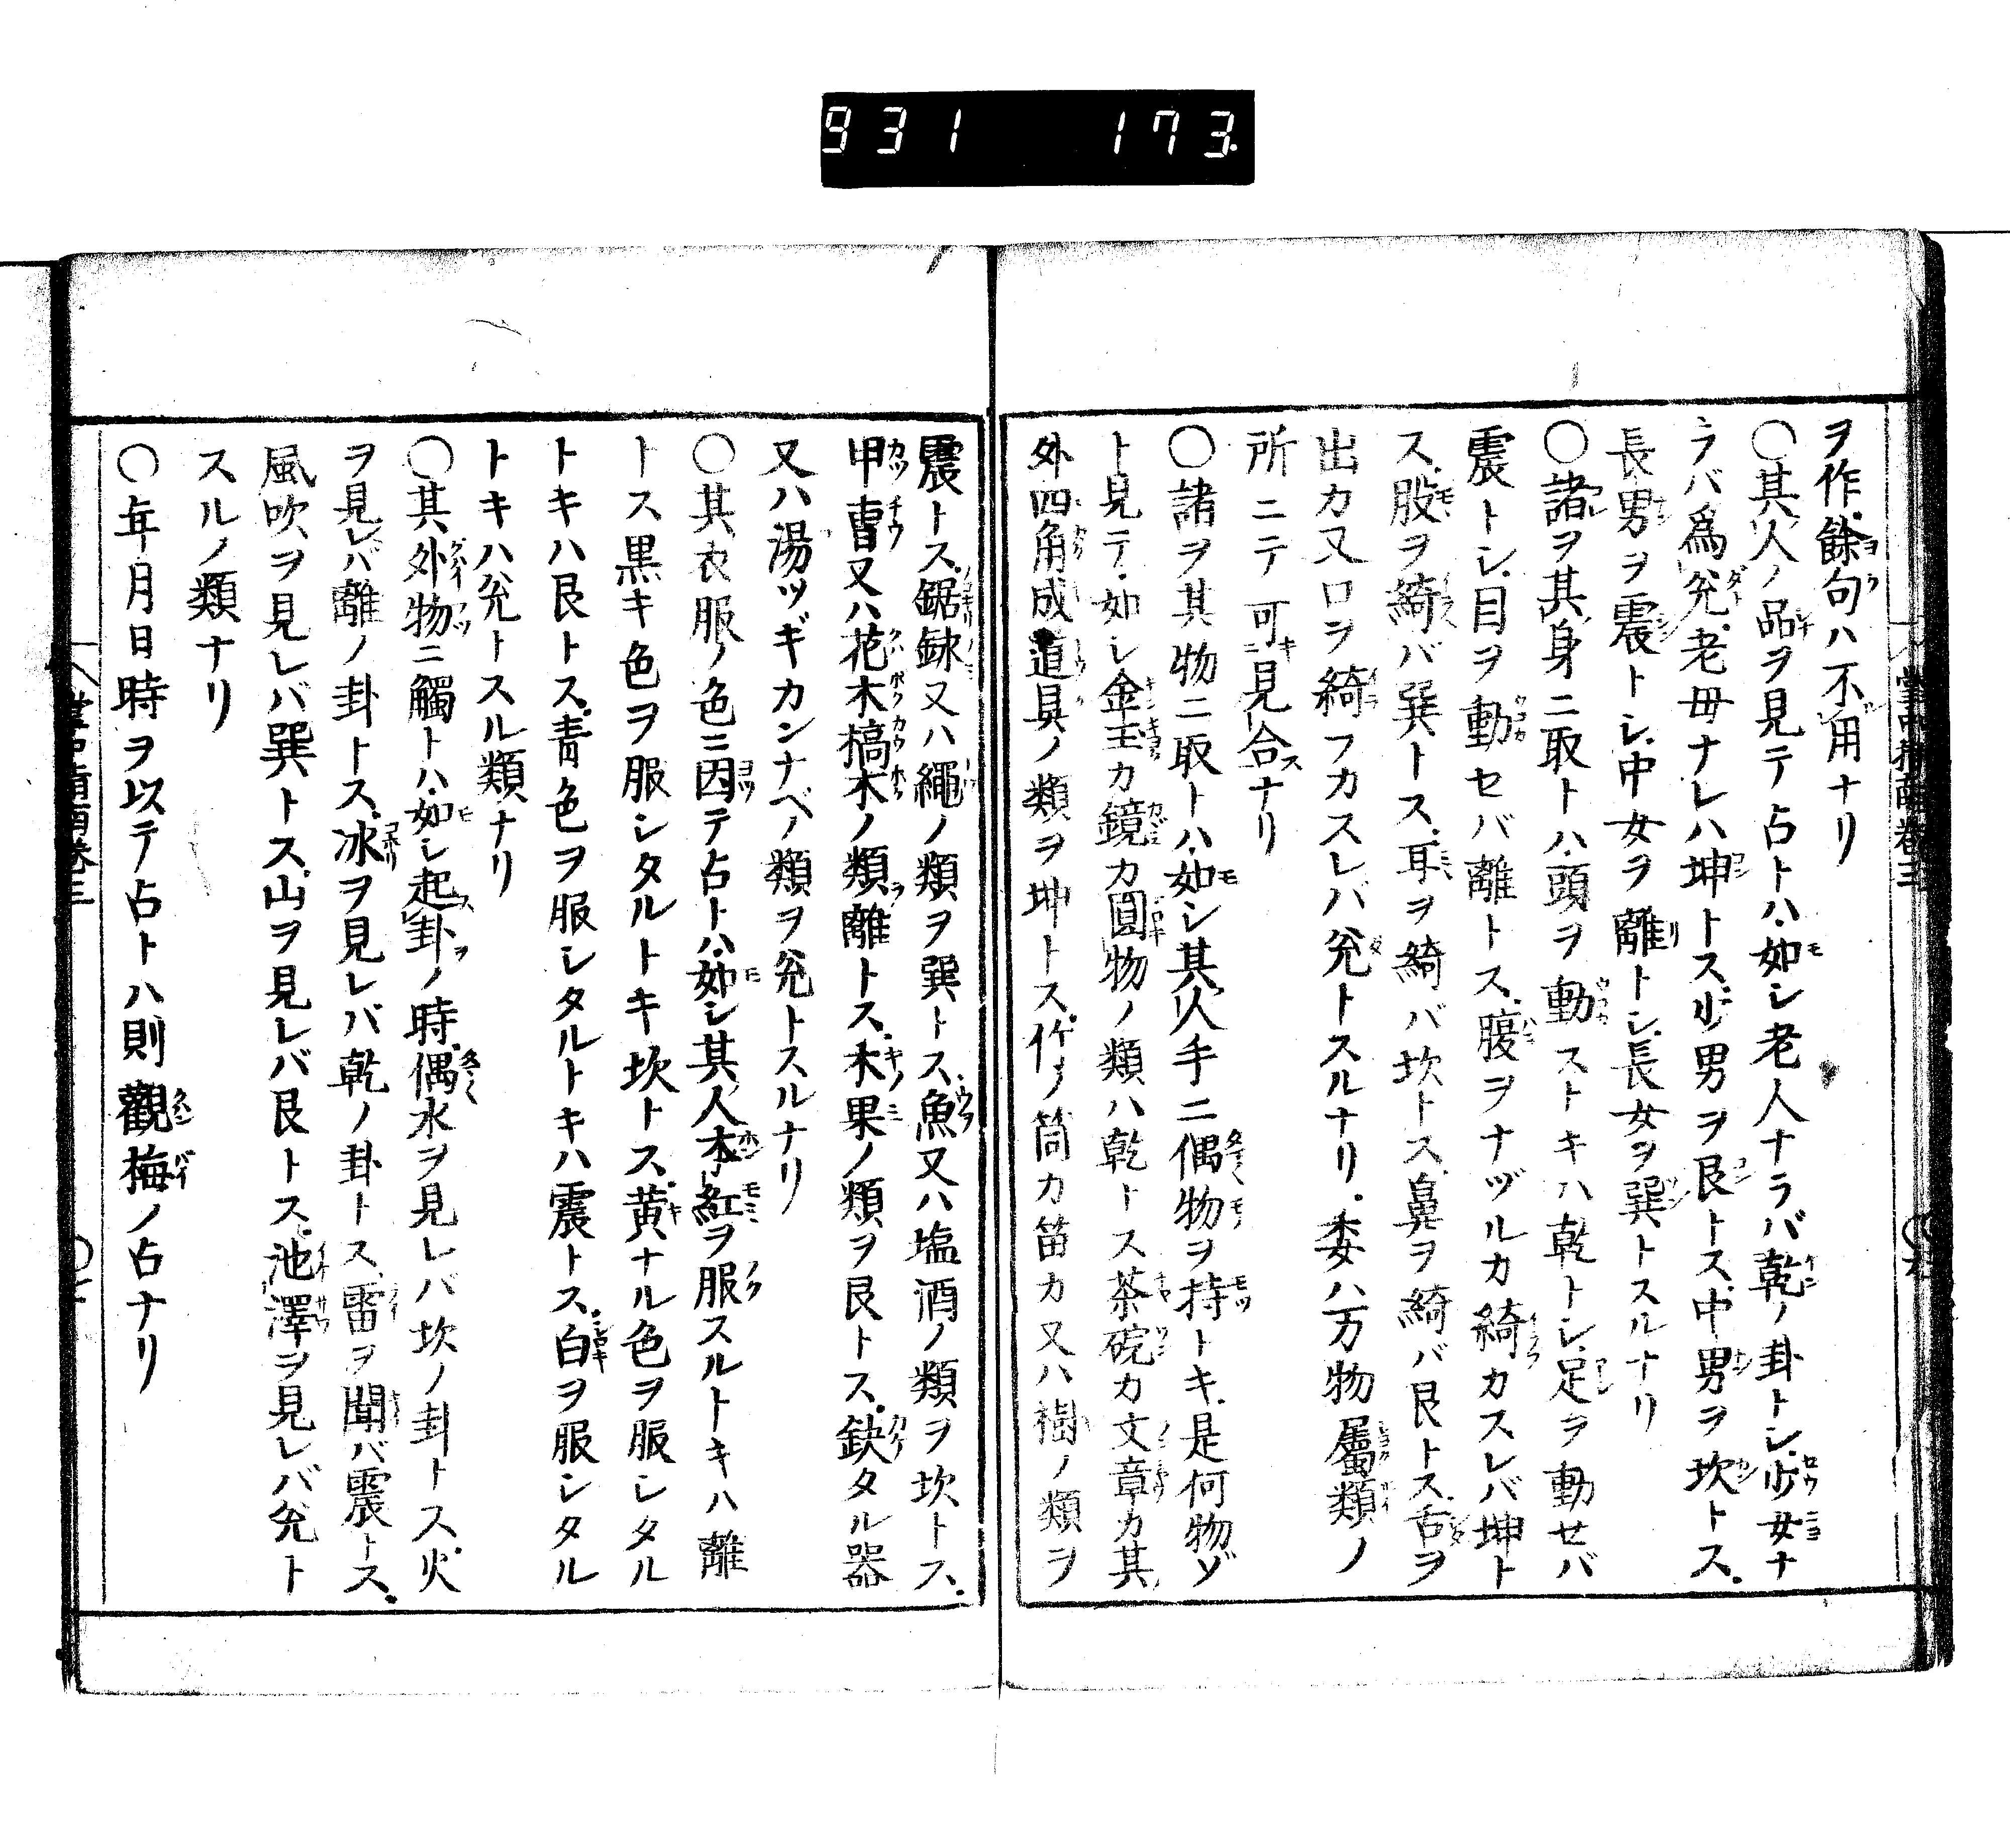 931 173.
ヲ作.餘句ハ不用ナリ
〇其人ノ品ヲ見テ占トハ.如シ老人ナラバ乾ノ卦トシ.少女ナ
ラバ爲兊.老母ナレハ坤トス.少男ヲ艮トス.中男ヲ坎トス.
長男ヲ震トシ.中女ヲ離トシ.長女ヲ巽トスルナリ
〇諸ヲ其身ニ取トハ.頭ヲ動ストキハ乾トシ.足ヲ動セバ
震トシ.目ヲ動セバ離トス.腹ヲナヅルカ綺カスレバ坤ト
ス.股ヲ綺バ巽トス.耳ヲ綺バ坎トス.鼻ヲ綺バ艮トス.舌ヲ
出カ又口ヲ綺フカスレバ兊トスルナリ.委ハ万物屬類ノ
所ニテ可見合ナリ
〇諸ヲ其物ニ取トハ.如シ其人手ニ偶物ヲ持トキ.是何物ゾ
ト見テ.如シ金玉カ鏡カ圓物ノ類ハ乾トス茶碗カ文章カ其
外四角成道具ノ類ヲ坤トス.竹ノ筒カ笛カ又ハ樹ノ類ヲ
掌中指南卷三
震トス.鋸銶又ハ繩ノ類ヲ巽トス.魚又ハ塩酒ノ類ヲ坎トス.
甲冑又ハ花木槁木ノ類離トス.木果ノ類ヲ艮トス.缺タル器
又ハ湯ツギカンナベノ類ヲ兊トスルナリ
〇其衣服ノ色ニ因テ占トハ.如シ其人本紅ヲ服スルトキハ離
トス黒キ色ヲ服シタルトキ坎トス.黄ナル色ヲ服シタル
トキハ艮トス.青色ヲ服シタルトキハ震トス.白ヲ服シタル
トキハ兊トスル類ナリ
〇其外物ニ觸トハ.如シ起卦ノ時.偶水ヲ見レバ坎ノ卦トス.火
ヲ見レバ離ノ卦トス.冰ヲ見レバ乾ノ卦トス.雷ヲ聞バ震トス.
風吹ヲ見レバ巽トス.山ヲ見レバ艮トス.池澤ヲ見レバ兊ト
スルノ類ナリ
〇年月日時ヲ以テ占トハ則觀梅ノ占ナリ
掌中指南卷三